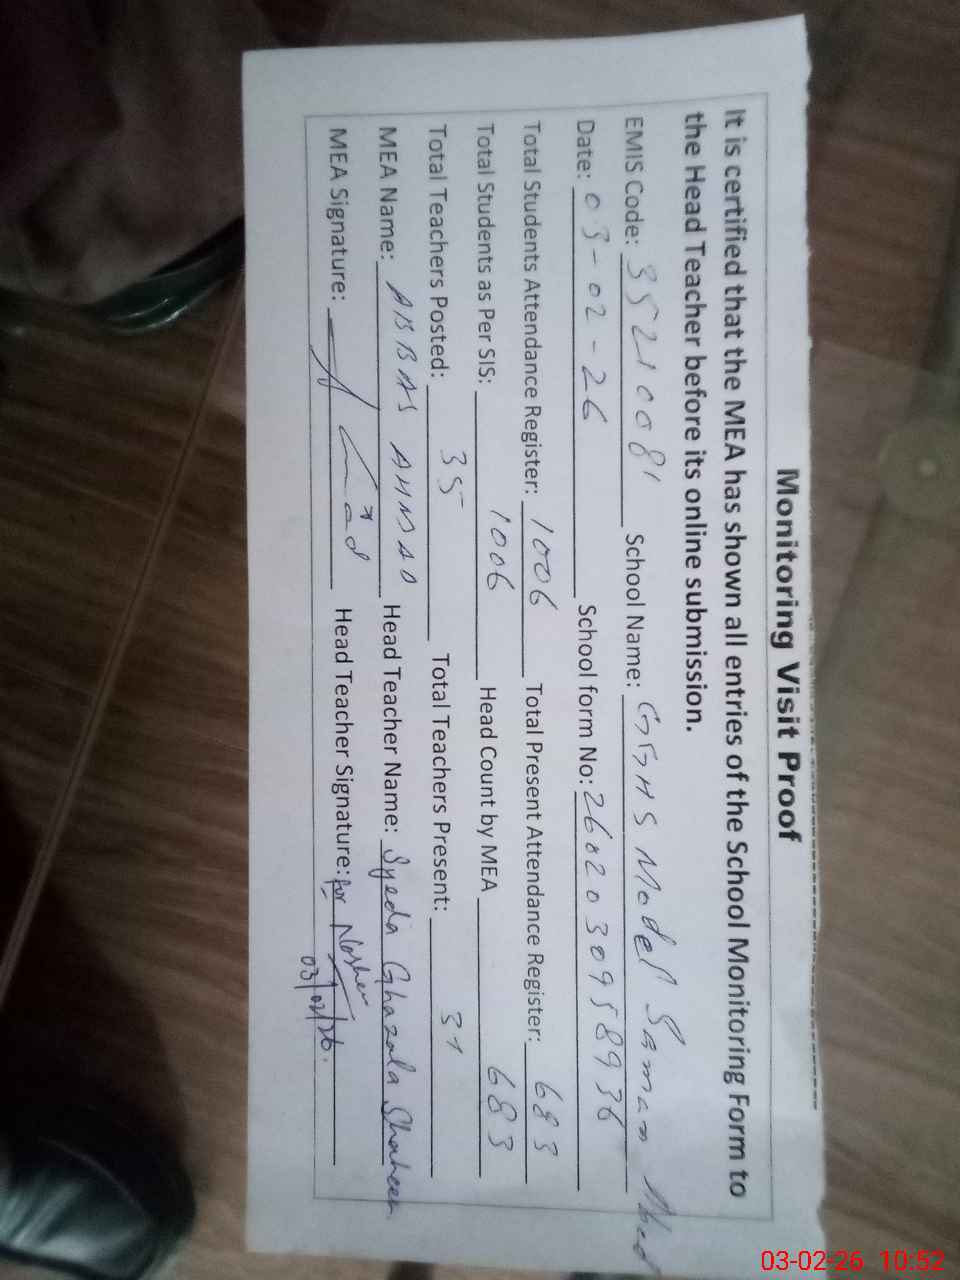 Monitoring Visit Proof
It is certified that the MEA has shown all entries of the School Monitoring Form to
the Head Teacher before its online submission.
EMIS Code: 35210081 School Name: GGHS Model Saman
Date: 03-02-26 School form No: 260203095 8936
Total Students Attendance Register: 1006 Total Present Attendance Register: 683
Total Students as Per SIS: 1006 Head Count by MEA 683
Total Teachers Posted: 35 Total Teachers Present: 31
MEA Name: ABBAS AHMAD Head Teacher Name: Syeda Ghazala Shaheen
MEA Signature: Head Teacher Signature: for
03/02/26.
03-02-26 10:52